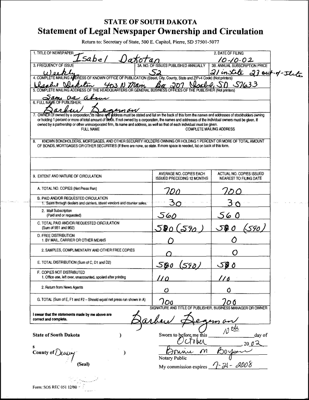 STATE OF SOUTH DAKOTA
Statement of Legal Newspaper Ownership and Circulation
Return to: Secretary of State, 500 E. Capitol, Pierre, SD 57501-5077
1. TITLE OF NEWSPAPER Isabel Dakotan
2. DATE OF FILING 10-10-02
3. FREQUENCY OF ISSUE Weekly
3A. NO. OF ISSUES PUBLISHED ANNUALLY 52
3B. ANNUAL SUBSCRIPTION PRICE 21 in state 27 out-of-state
4. COMPLETE MAILING ADDRESS OF KNOWN OFFICE OF PUBLICATION (Street, City, County, State and ZIP+4 Code) (Not printers)
Isabel Dakotan 403 N Main Box 207 Isabel, SD 57633
5. COMPLETE MAILING ADDRESS OF THE HEADQUARTERS OF GENERAL BUSINESS OFFICES OF THE PUBLISHER (Not printer)
Same as above
6. FULL NAME OF PUBLISHER:
Barbara Begeman
7. OWNER (If owned by a corporation, its name and address must be stated and also on the back of this form the names and addresses of stockholders owning
or holding 1 percent or more of total amount of stock. If not owned by a corporation, the names and addresses of the individual owners must be given. If
owned by a partnership or other unincorporated firm, its name and address, as well as that of each individual must be given.
FULL NAME COMPLETE MAILING ADDRESS
8. KNOWN BONDHOLDERS, MORTGAGEES, AND OTHER SECURITY HOLDERS OWNING OR HOLDING 1 PERCENT OR MORE OF TOTAL AMOUNT
OF BONDS, MORTGAGES OR OTHER SECURITIES (If there are none, so state. If more space is needed, list on back of this form.
9. EXTENT AND NATURE OF CIRCULATION
AVERAGE NO. COPIES EACH ISSUED PRECEDING 12 MONTHS
ACTUAL NO. COPIES ISSUED NEAREST TO FILING DATE
A. TOTAL NO. COPIES (Net Press Run) 700 700
B. PAID AND/OR REQUESTED CIRCULATION
1. Sales through dealers and carriers, street vendors and counter sales 30 30
2. Mail Subscription (Paid and or requested) 560 560
C. TOTAL PAID AND/OR REQUESTED CIRCULATION (Sum of 9B1 and 9B2) (590) (590)
D. FREE DISTRIBUTION
1. BY MAIL, CARRIER OR OTHER MEANS 0 0
1. SAMPLES, COMPLIMENTARY AND OTHER FREE COPIES 0 0
E. TOTAL DISTRIBUTION (Sum of C, D1 and D2) (590)
F. COPIES NOT DISTRIBUTED
1. Office use, left over, unaccounted, spoiled after printing 110 110
2. Return from News Agents 0 0
G. TOTAL (Sum of E, F1 and F2 - Should equal net press run shown in A) 700 700
I swear that the statements made by me above are correct and complete.
SIGNATURE AND TITLE OF PUBLISHER, BUSINESS MANAGER OR OWNER
Barbara Begeman
State of South Dakota )
County of Dewey )
(Seal)
Sworn to before me this 10th day of
October 2002
Bonnie M
Notary Public
My commission expires 7-21-2008
Form: SOS REC 051 12/98